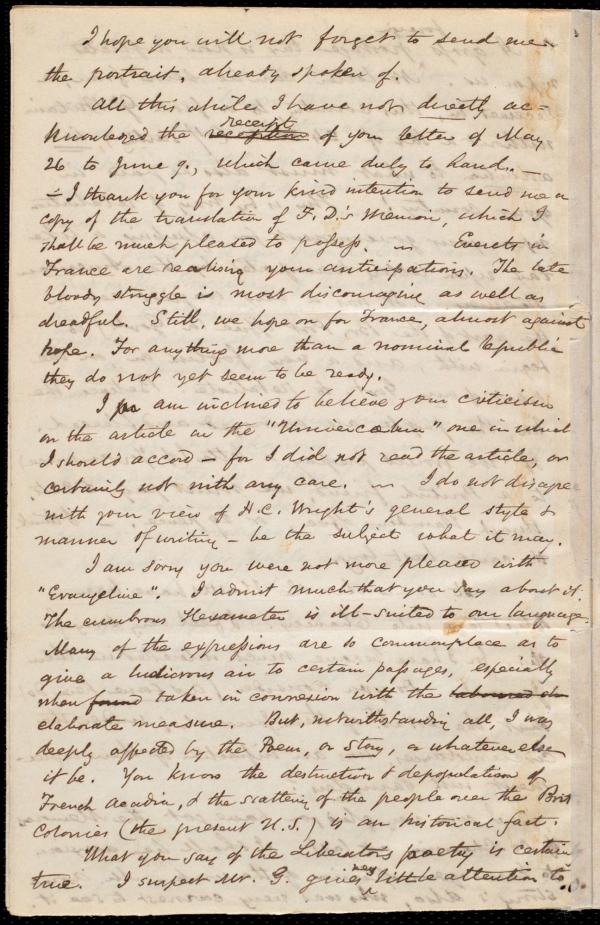 I hope you will not forget to send me
the portrait, already spoken of.
All this while I have not directly ac=
knowledged the reception receipt of your letter of May
26 to June 9, which came duly to hand. —
— I thank you for your kind intention to send me a
copy of the translation of F. D.'s Memoir, which I
shall be much pleased to possess. — Events in
France are realising your anticipations. The late
bloody struggle is most discouraging as well as
dreadful. Still, we hope on for France, almost against
hope. For anything more than a nominal Republic
they do not yet seem to be ready.
I am inclined to believe your criticism
on the article in the "Univercœlum" one in which
I should accord — for I did not read the article, or
certainly not with any care. — I do not disagree
with your view of H. C. Wright's general style &
manner of writing — be the subject what it may.
I am sorry you were not more pleased with
"Evangeline". I admit much that you say about it.
The cumbrous Hexameter is ill-suited to our language.
Many of the expressions are so commonplace as to
give a ludicrous air to certain passages, especially
when found taken in connexion with the laboured
elaborate measure. But, notwithstanding all, I was
deeply affected by the Poem, or Story, or whatever else
it be. You know the destruction & depopulation of
French Acadia, & the scattering of the people over the Brit
Colonies (the present U.S.) is an historical fact.
What you say of the Liberator's poetry is certainly
true. I suspect Mr. G. gives very little attention to